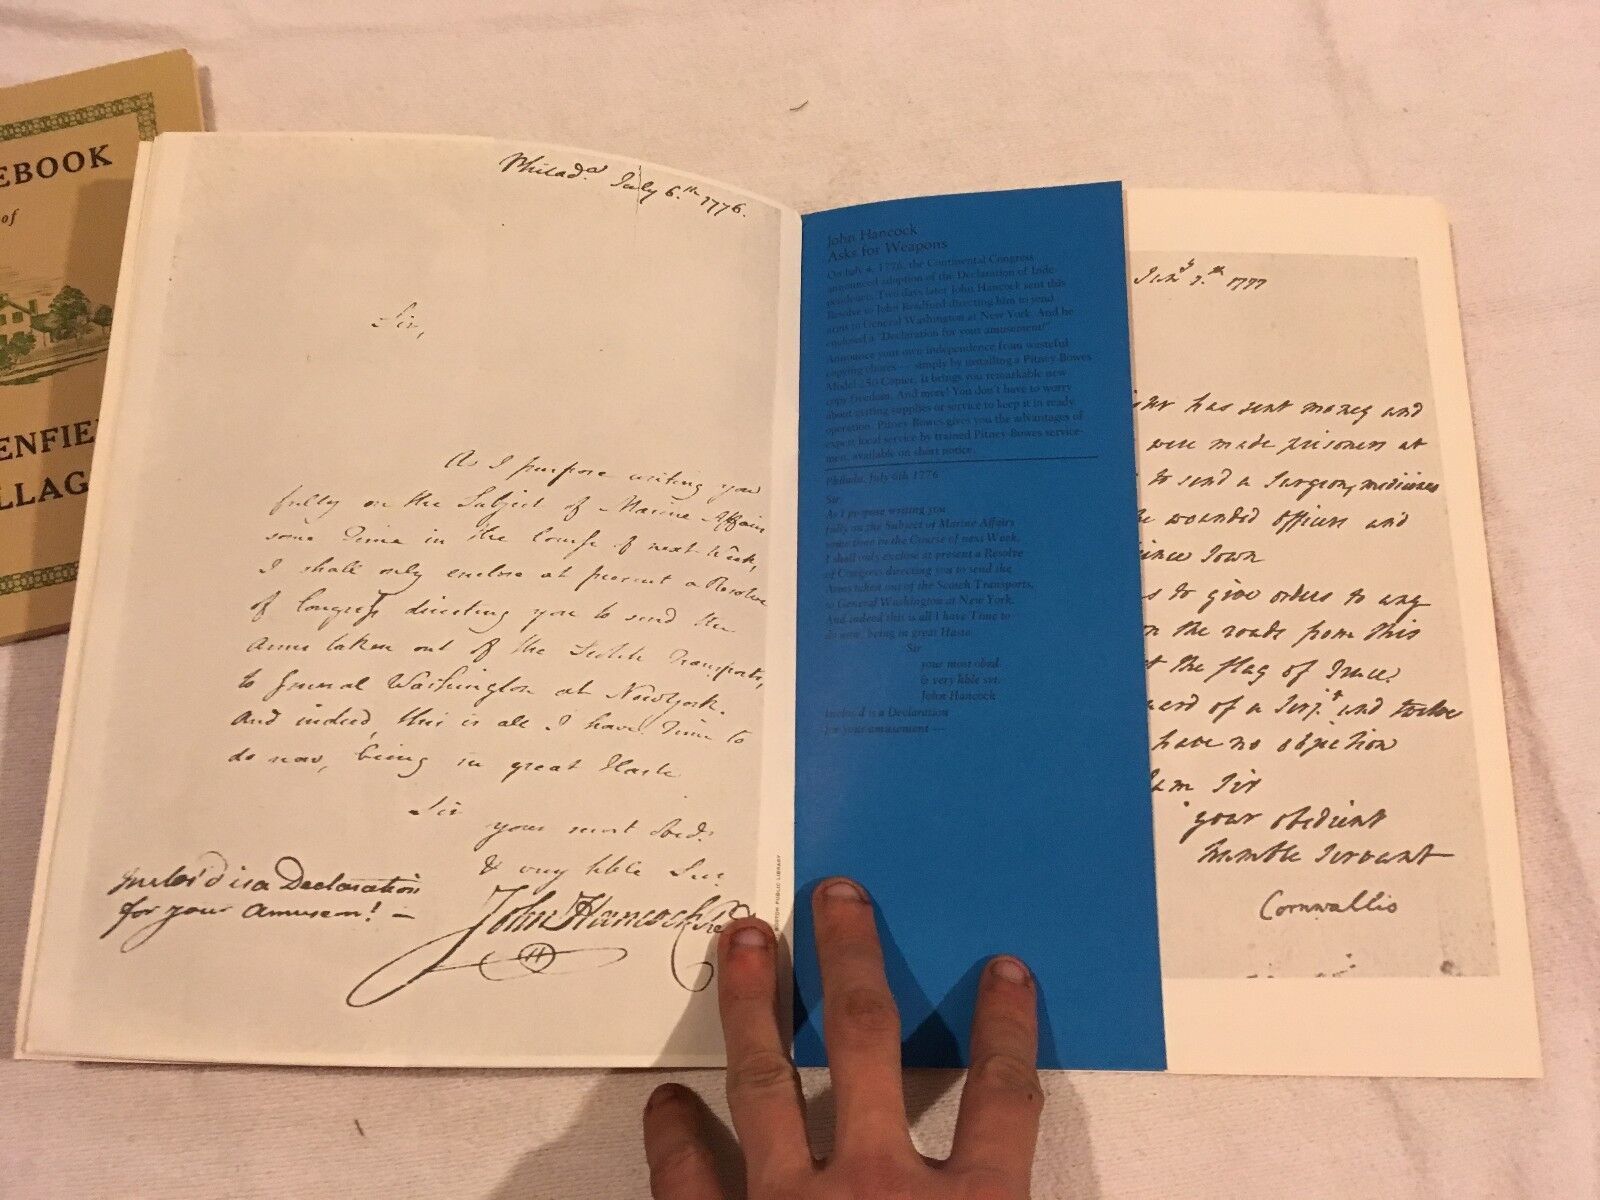 EBOOK
of
ENFIE
LLAG
Philad.a July 6.th 1776.
Sir,
As I purpose writing you
fully on the Subject of Marine Affairs
some Time in the Course of next Week,
I shall only enclose at present a Resolve
of Congress directing you to send the
Arms taken out of the Scotch Transports,
to General Washington at New York.
And indeed, this is all I have Time to
do now, being in great Haste
Sir
your most obed.
& very hble Svt.
John Hancock
Inclos'd is a Declaration
for your amusem! —
BOSTON PUBLIC LIBRARY
John Hancock
Asks for Weapons
On July 4, 1776, the Continental Congress
announced adoption of the Declaration of Inde
pendence. Two days later John Hancock sent this
Resolve to John Bradford directing him to send
arms to General Washington at New York. And he
enclosed a "Declaration for your amusement!"
Announce your own independence from wasteful
copying chores — simply by installing a Pitney-Bowes
Model 250 Copier. It brings you remarkable new
copy freedom. And more! You don't have to worry
about getting supplies or service to keep it in ready
operation. Pitney-Bowes gives you the advantages of
expert local service by trained Pitney-Bowes service-
men, available on short notice.
Philada. July 6th 1776
Sir
As I propose writing you
fully on the Subject of Marine Affairs
some time in the Course of next Week,
I shall only enclose at present a Resolve
of Congress directing you to send the
Arms taken out of the Scotch Transports,
to General Washington at New York.
And indeed this is all I have Time to
do now, being in great Haste
Sir
your most obed.
& very hble svt.
John Hancock
Inclos'd is a Declaration
for your amusement —
7.th 1777
has sent money and
were made prisoners at
to send a Surgeon, medicines
wounded officers and
Town
s to give orders to any
on the roads from this
t the flag of Truce,
of a Serj.t and twelve
have no objection
am Sir
your obedient
humble Servant
Cornwallis